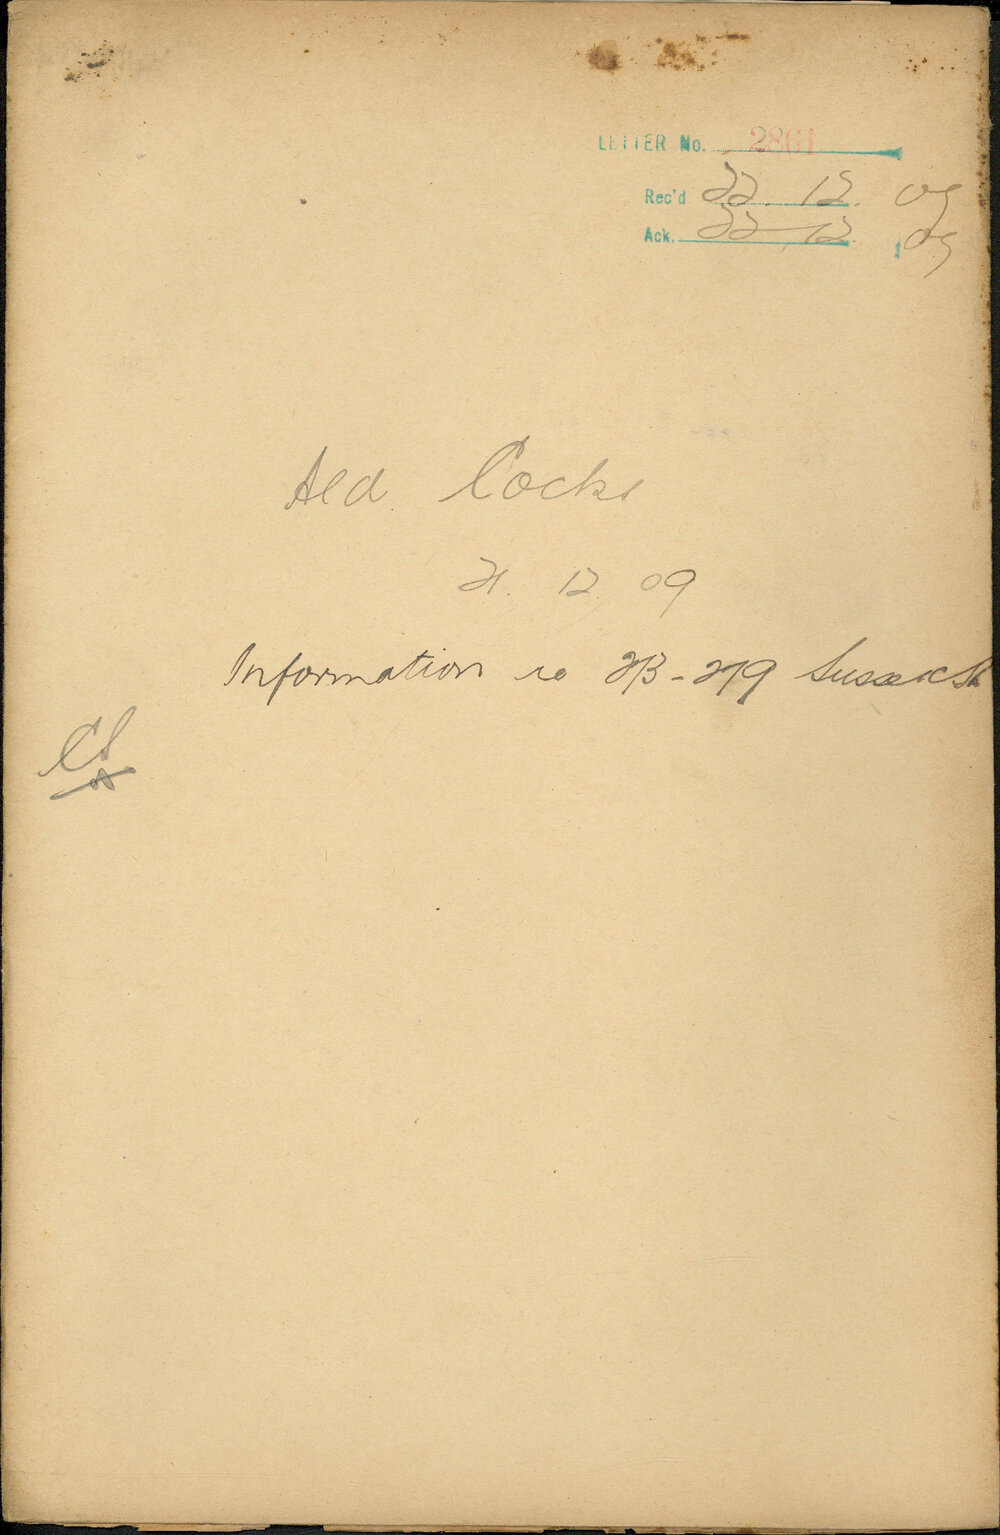 LETTER No. 2861
Rec'd 22. 12. 09
Ack. 22 12 09
Ald Cocks
21. 12 09
Information re 213-219 Sussex St